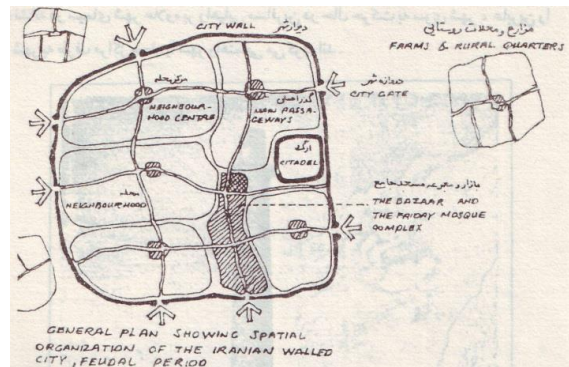 CITY WALL
دیوار شهر
مزارع و محلات روستایی
FARMS & RURAL QUARTERS
مرکز محله
NEIGHBOUR-
HOOD CENTRE
گذر اصلی
MAIN PASSA-
GEWAYS
CITY GATE
ارگ
CITADEL
محله
NEIGHBOURHOOD
بازار و مجموعه مسجد جامع
THE BAZAAR AND
THE FRIDAY MOSQUE
COMPLEX
GENERAL PLAN SHOWING SPATIAL
ORGANIZATION OF THE IRANIAN WALLED
CITY, FEUDAL PERIOD